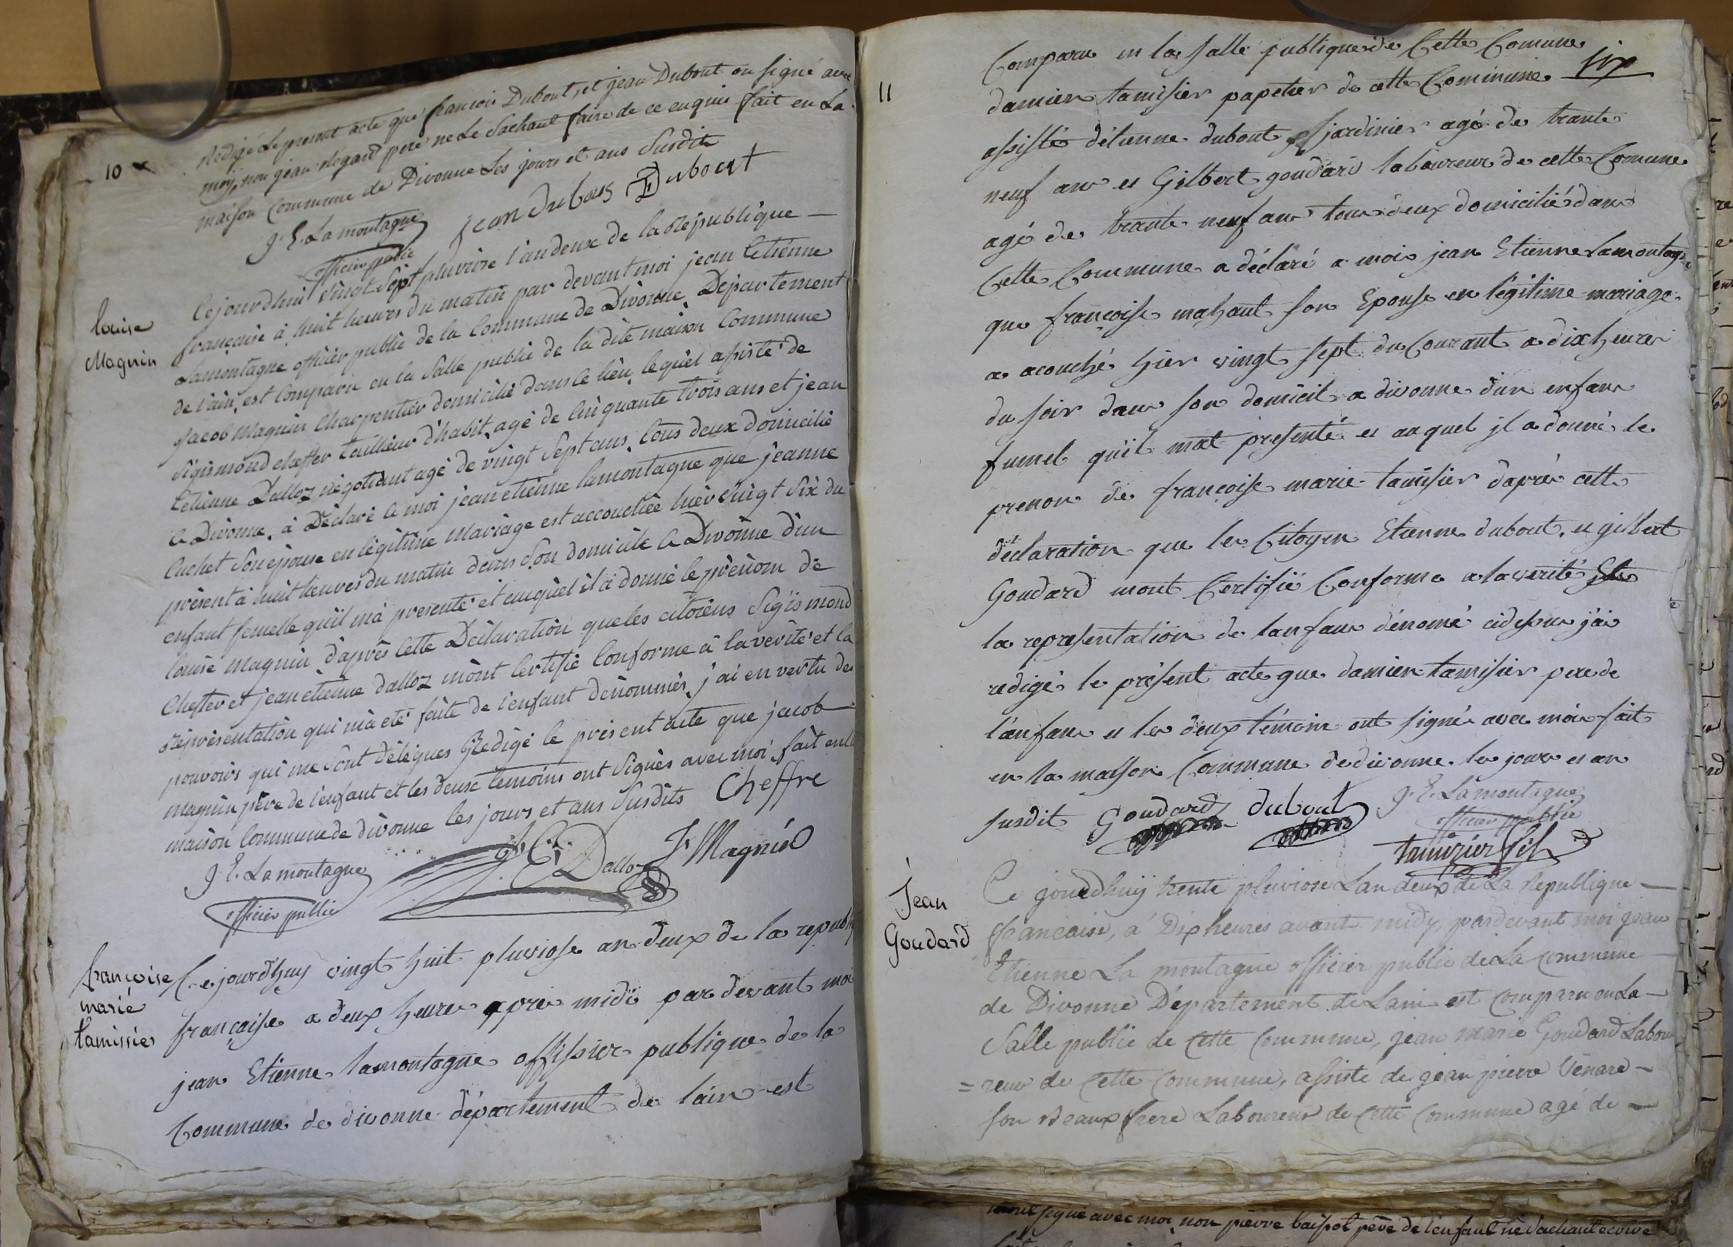 10
Rédigé le présent acte que françois Dubout, et jean Dubout on signé avec
moy, non jean Regard père ne le sachant faire de ce enquis fait en La
maison Commune de Divonne les jours et ans Susdits
J. E. Lamontagne
officier public
jean dubous Dubout
Louise
Magnin
Cejourd'huit vingt sept pluviose l'an deux de la Republique
française à huit heures du matin par devant moi jean Etienne
Lamontagne officier public de la Commune de Divonne Département
de l'ain, est Comparu en la Salle public de la dite maison Commune
jacob Magnin Charpentier domicilié dans ce lieu, lequel assisté de
Sigismond cheffer tailleur d'habit, agé de Cinquante trois ans et jean
Etienne Dalloz négotiant agé de vingt Sept ans, tous deux domicilié
a Divonne, à Déclaré a moi jean etienne lamontagne que jeanne
Cuchet Son épouse en légitime Mariage est accouchée hier vingt Six du
présent à huit heures du matin dans Son domicile a Divonne d'un
enfant femelle qu'il m'a présenté et auquel il à donné le prénom de
louise magnin, d'après Cette Déclaration que les citoiens Sigismond
Cheffer et jean étienne dalloz m'ont Certifié Conforme à la vérité et la
Réprésentation qui m'a été faite de l'enfant dénommés, j'ai en vertu des
pouvoirs qui me sont délégués Redigé le présent acte que jacob
magnin père de l'enfant et les deux temoins ont Signés avec moi, fait en la
maison Commune de divonne les jours et ans Susdits Cheffre
J. E. Lamontagne
officier public
J. E. Dalloz
J Magnin
françoise
marie
tamissier
Cejourdhuy vingt huit pluviose an deux de la republ
française a deux heure apres midi par devant moi
jean Etienne lamontagne offissier publique de la
Commune de divonne département de lain est
11
six
Comparu en la salle publique de Cette Comune
damien tamisier papetier de cette Commune
assisté détienne dubout jardinier agé de trante
neuf ans et Gilbert goudard laboureur de cette Comune
agé de trante neuf ans tous deux domicilié dans
Cette Commune a déclaré a mois jean Etienne Lamontagne
que françoise mahaut son Epouse en légitime mariage
a acouché hier vingt sept du Courant a dix heures
du soir dans son domicil a divonne dun enfant
fumel quil mat presenté et auquel il a donné le
prenom de françoise marie tamisier daprés cette
déclaration que les Citoyen Etienne dubout et gilbert
Goudard mont Certifié Conforme a la verité
la representation de lanfant dénomé cidessus jai
redigé le présent acte que damien tamisier pere de
l'anfans et les deux témoin ont signés avec mois fait
en la maison Commune de divonne les jour et an
susdit Goudard dubout J. E. Lamontagne
officier public
tamizier fils
Jean
Goudard
Ce jourdhuÿ trente pluviose Lan deux de La Republique
francaise, à Dix heures avant midy, pardevant moi jean
Etienne La montagne officier public de La commune
de Divonne Département de Lain est comparu en La
Salle public de cette commune, jean marie Goudard Labou
= reur de cette Commune, assiste de jean pierre Vénare
son Beaux frere Laboureur de cette Commune agé de
signé avec moi non pierre baissot père de lenfant ne Sachant écrire